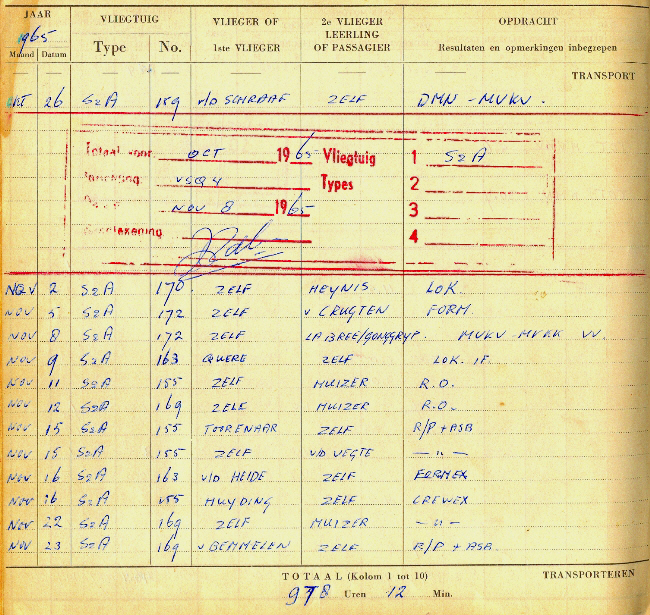 JAAR 1965 VLIEGTUIG VLIEGER OF 1ste VLIEGER 2e VLIEGER LEERLING OF PASSAGIER OPDRACHT
Maand Datum Type No. Resultaten en opmerkingen inbegrepen
TRANSPORT
OKT 26 S2A 159 v/D SCHRAAF ZELF DMN - MVKV.
Totaal voor: OCT 1965 Vliegtuig 1 S2A
Inrichting: VSQ4 Types 2
NOV 8 1965 3
4
NOV 2 S2A 170 ZELF HEYNIS LOK
NOV 5 S2A 172 ZELF v CRUGTEN FORM.
NOV 8 S2A 172 ZELF LABREE/GONGGRYP. MVKV - MVKK VV.
NOV 9 S2A 163 QUERE ZELF LOK. IF.
NOV 11 S2A 155 ZELF MUIZER R.O.
NOV 12 S2A 169 ZELF MUIZER R.O.
NOV 15 S2A 155 TOORENAAR ZELF R/P + ASB
NOV 15 S2A 155 ZELF v/D VEGTE — " —
NOV 16 S2A 163 v/D HEIDE ZELF FORMEX
NOV 16 S2A 155 HUYDING ZELF CREWEX
NOV 22 S2A 169 ZELF MUIZER — " —
NOV 23 S2A 169 v BEMMELEN ZELF R/P + ASB
TOTAAL (Kolom 1 tot 10) TRANSPORTEREN
978 Uren 12 Min.